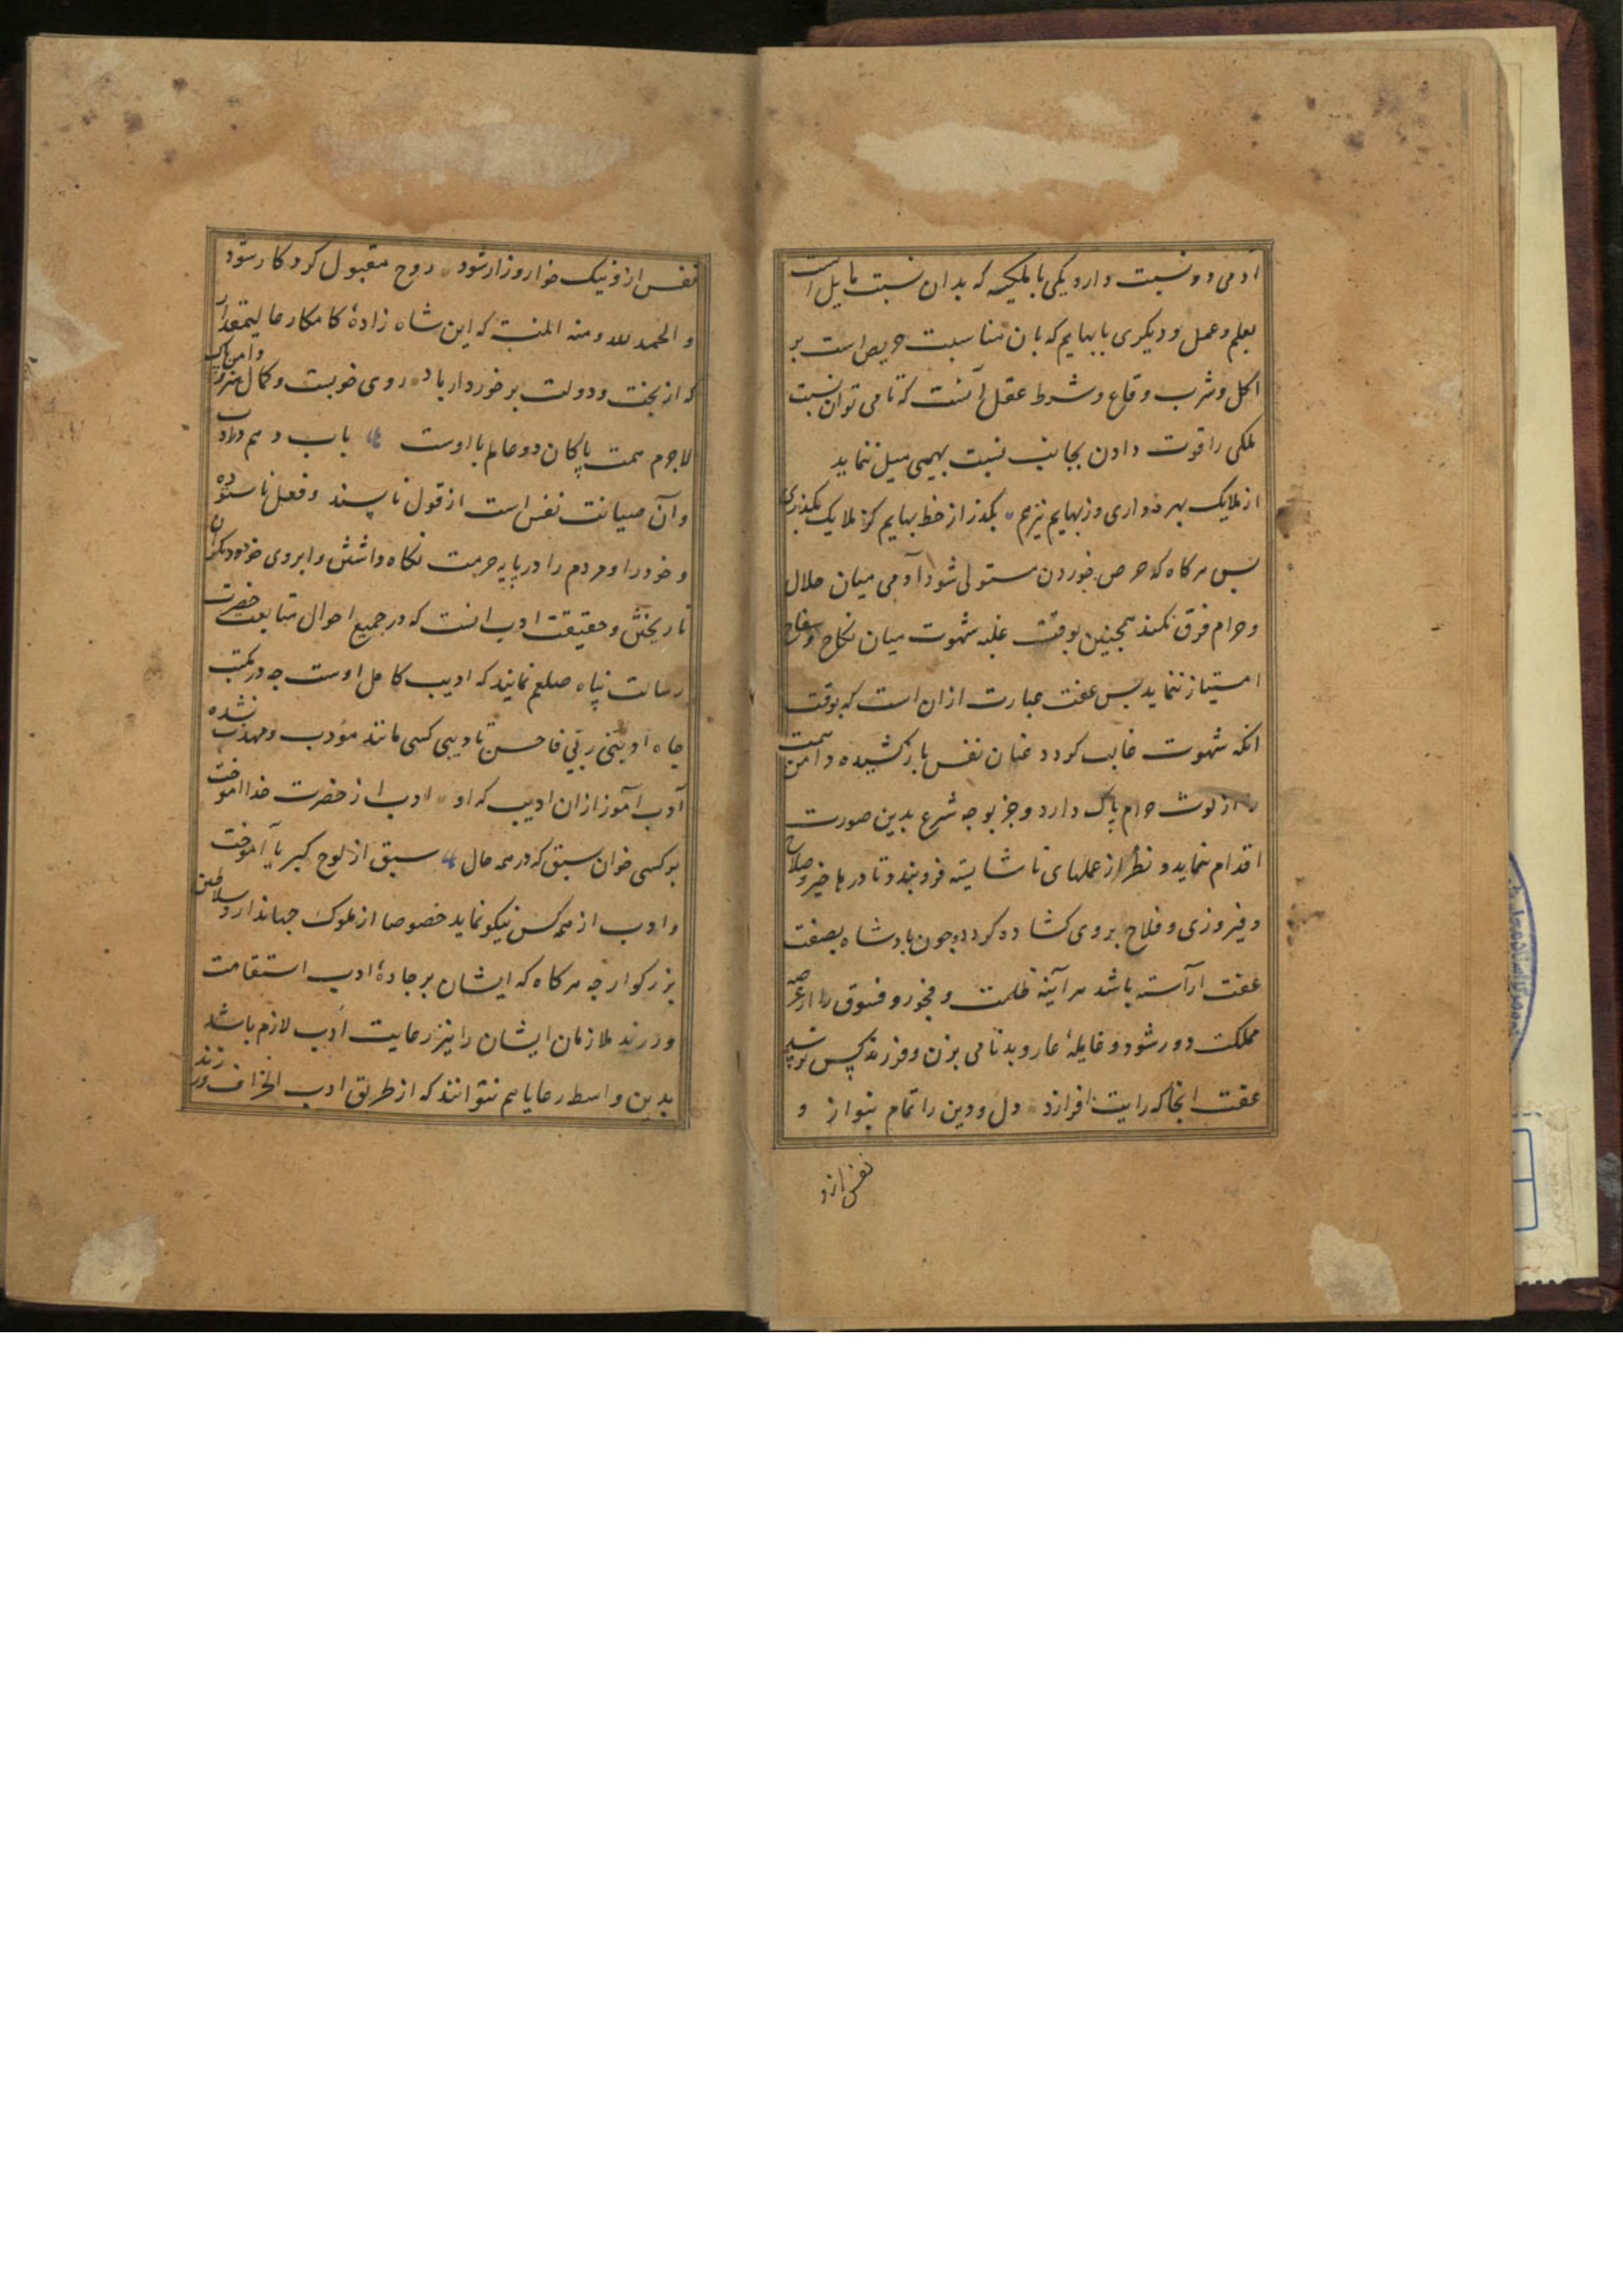 آدمی دو نسبت دارد یکی با ملیکه که بدان نسبت مایل است
بعلم و عمل و دیکری با بهایم که بان مناسبت حریص است بر
اکل و شرب و وقاع و شرط عقل آنست که تا می توان نسبت
ملکی را قوت دادن بجانب نسبت بهیمی میل ننماید
از ملایک بهره داری وز بهایم نیز هم بکذر از خط بهایم کز ملایک بکذری
پس هرکاه که حرص خوردن مستولی شود آدمی میان حلال
و حرام فرق نکند همچنین بوقت غلبه شهوت میان نکاح و سفاح
امتیاز ننماید پس عفت عبارت ازان است که بوقت
انکه شهوت غالب کردد عنان نفس باز کشیده دامن همت
را از لوث حرام پاک دارد و جز بوجه شرع بدین صورت
اقدام ننماید و نظر از عملهای ناشایسته فروبندد تا درها خیر و صلاح
و فیروزی و فلاح بروی کشاده کردد و چون پادشاه بصفت
عفت آراسته باشد هر آینه ظلمت و فجور و فسوق را از عرصه
مملکت دور شود و غایلهٔ عار و بدنامی بزن و فرزند کس نرسد
عفت انجا که رایت افرازد دل و دین را تمام بنوازد و
نفس ازو
نفس ازو نیک خوار و زار شود روح مقبول کردکار شود
و الحمد لله و منه المنت که این شاه زادهٔ کامکار عالیمقدار
که از بخت و دولت برخوردار باد روی خوبست و کمال هنر و دامن پاک
لاجرم همت پاکان دو عالم با اوست باب دهم در ادب
و آن صیانت نفس است از قول ناپسند و فعل ناستوده
و خود را و مردم را در پایه حرمت نکاه داشتن و ابروی خود و دیکران
نا ریختن و حقیقت ادب انست که در جمیع احوال متابعت حضرت
رسالت پناه صلعم نمایند که ادیب کامل اوست چه در مکتب
جاه ادبنی ربی فاحسن تادیبی کسی مانند مؤدب و مهذب نشده
ادب آموز ازان ادیب که او ادب از حضرت خدا اموخت
بر کسی خوان سبق که در همه حال سبق از لوح کبریا آموخت
و ادب از همه کس نیکو نماید خصوصا از ملوک جهاندار و سلاطین
بزرکوار چه هرکاه که ایشان بر جادهٔ ادب استقامت
ورزند ملازمان ایشان را نیز رعایت ادب لازم باشد
بدین واسطه رعایا هم نتوانند که از طریق ادب انحراف ورزند